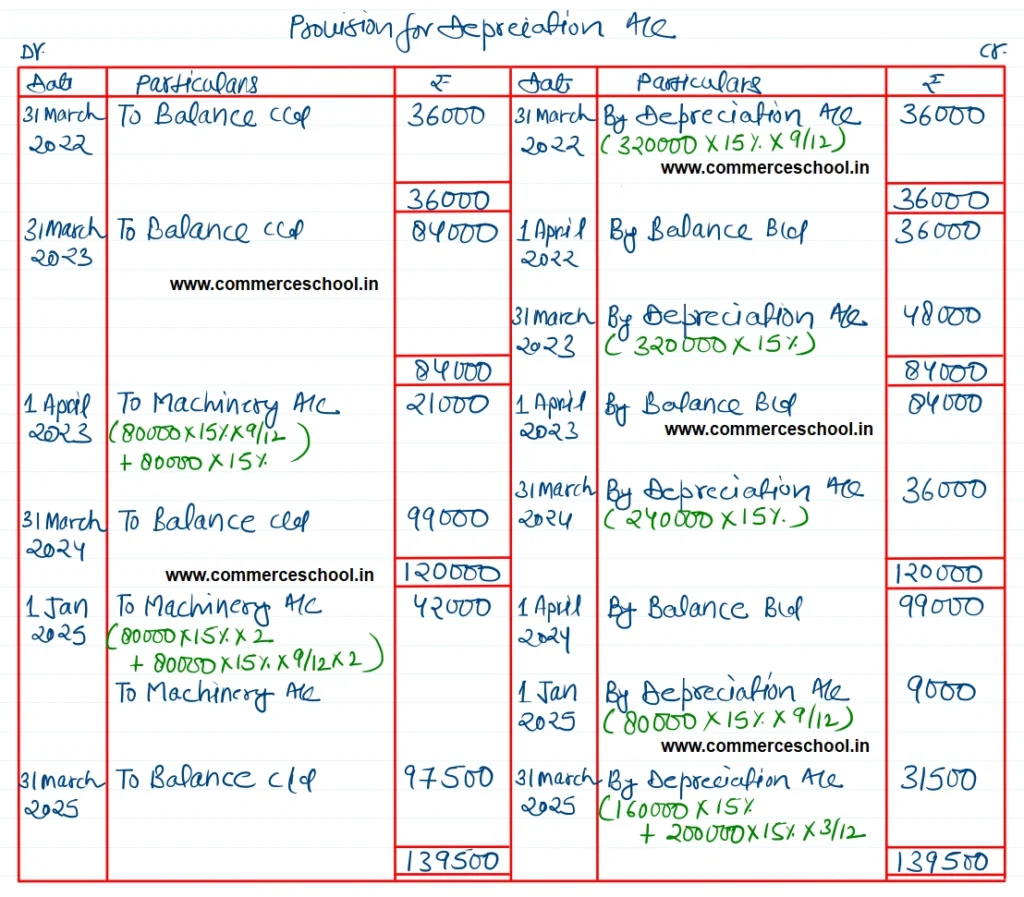 Provision for Depreciation A/c
Dr. Cr.
Date Particulars ₹ Date Particulars ₹
31 March To Balance c/d 36000 31 March By Depreciation A/c 36000
2022 2022 (320000 X 15% X 9/12)
www.commerceschool.in
36000 36000
31 March To Balance c/d 84000 1 April By Balance B/d 36000
2023 2022
www.commerceschool.in
31 March By Depreciation A/c 48000
2023 (320000 X 15%)
84000 84000
1 April To Machinery A/c 21000 1 April By Balance B/d 84000
2023 (80000 X 15% X 9/12 2023 www.commerceschool.in
+ 80000 X 15% )
31 March By Depreciation A/c 36000
31 March To Balance c/d 99000 2024 (240000 X 15%.)
2024
www.commerceschool.in 120000 120000
1 Jan To Machinery A/c 42000 1 April By Balance B/d 99000
2025 (80000 X 15% X 2 2024
+ 80000 X 15% X 9/12 X 2)
To Machinery A/c 1 Jan By Depreciation A/c 9000
2025 (80000 X 15% X 9/12)
www.commerceschool.in
31 March To Balance c/d 97500 31 March By Depreciation A/c 31500
2025 2025 (160000 X 15%
+ 200000 X 15% X 3/12
139500 139500